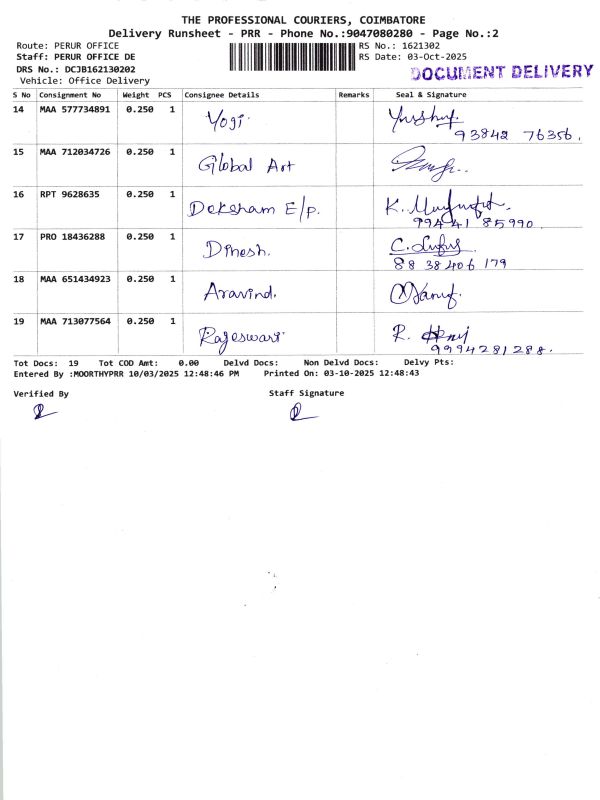 THE PROFESSIONAL COURIERS, COIMBATORE
Delivery Runsheet - PRR - Phone No.:9047080280 - Page No.:2
Route: PERUR OFFICE RS No.: 1621302
Staff: PERUR OFFICE DE RS Date: 03-Oct-2025
DRS No.: DCJB162130202 DOCUMENT DELIVERY
Vehicle: Office Delivery
S No Consignment No Weight PCS Consignee Details Remarks Seal & Signature
14 MAA 577734891 0.250 1 Yogi
93842 76356.
15 MAA 712034726 0.250 1 Global Art
16 RPT 9628635 0.250 1 Deksham E/p.
99441 85990.
17 PRO 18436288 0.250 1 Dinesh.
88 38 406 179
18 MAA 651434923 0.250 1 Aravind.
19 MAA 713077564 0.250 1 Rajeswari
9994281288.
Tot Docs: 19 Tot COD Amt: 0.00 Delvd Docs: Non Delvd Docs: Delvy Pts:
Entered By :MOORTHYPRR 10/03/2025 12:48:46 PM Printed On: 03-10-2025 12:48:43
Verified By Staff Signature